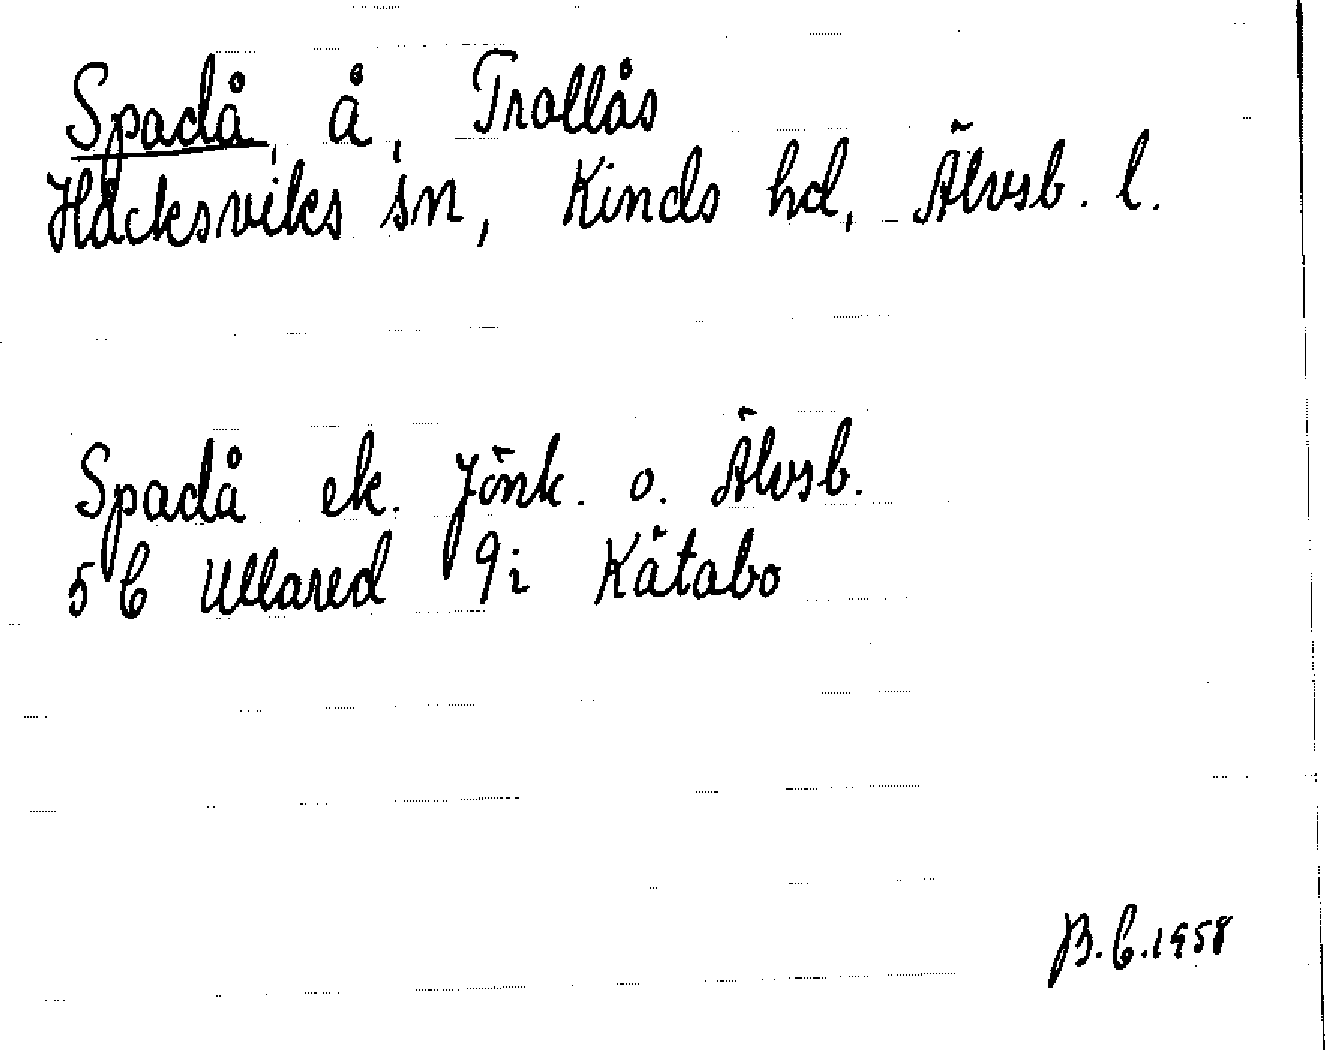 Spadå, å, Trollås
Håcksviks sn, Kinds hd, Älvsb. l.
Spadå ek. Jönk. o. Älvsb.
5 C Ullared 9i Kätabo
B.C.1958